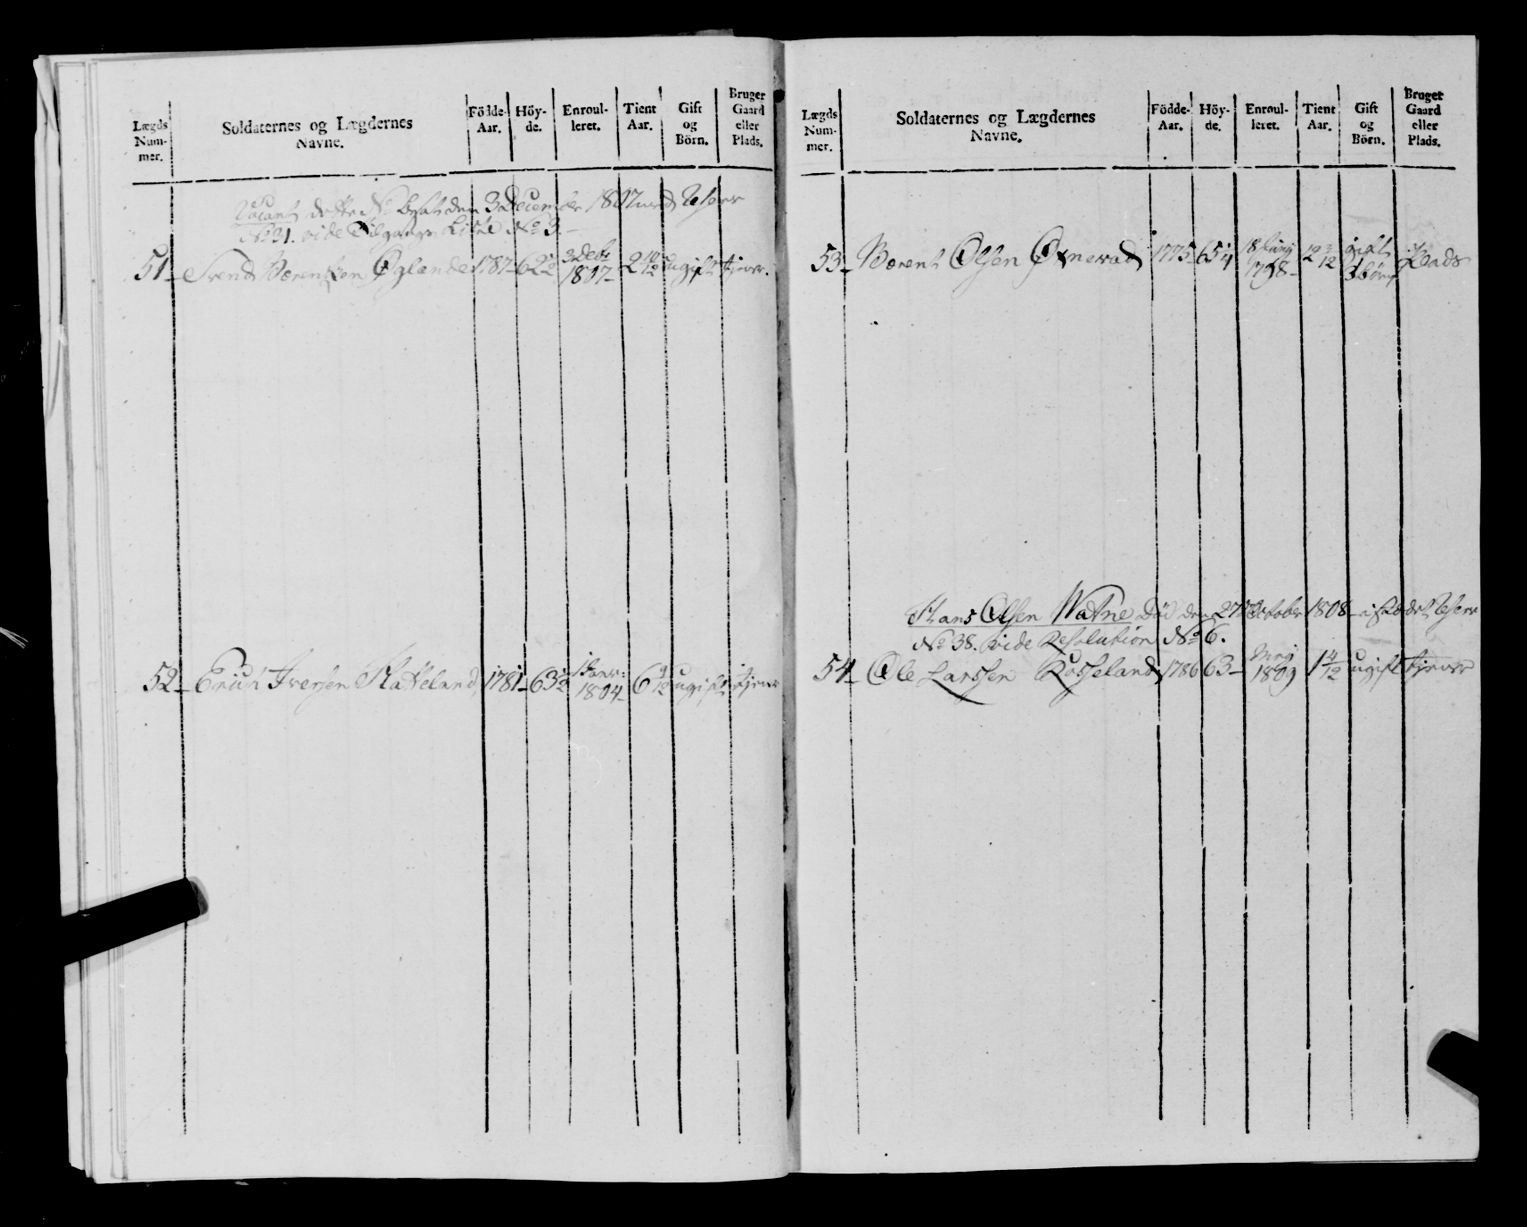 Lægds Num- mer.
Soldaternes og Lægdernes Navne.
Födde- Aar.
Höy- de.
Enroul- leret.
Tient Aar.
Gift og Börn.
Bruger Gaard eller Plads.
Vacant dette No besat den 3 December 1807 med Reserv
No 31. vide Tilgangs Liste No 3.
51 Svend Bærentsen Øglænde 1787 62½ 3 debr 1807 2 10/12 ugift tjener.
52 Erich Iversen Skatteland 1781 63½ 1 Janv: 1804 6 9/12 ugift tjener
Lægds Num- mer.
Soldaternes og Lægdernes Navne.
Födde- Aar.
Höy- de.
Enroul- leret.
Tient Aar.
Gift og Börn.
Bruger Gaard eller Plads.
53 Bærent Olsen Oxnevad 1775 65¼ 18 Junij 1798 12 3/12 gift 3 börn Plads
Hans Olsen Watne Död den 27 October 1808 i stædet Reserv
No 38. vide Resolution No 6.
54 Ole Larssen Rosseland 1786 63 Maij 1809 1 4/12 ugift tjener